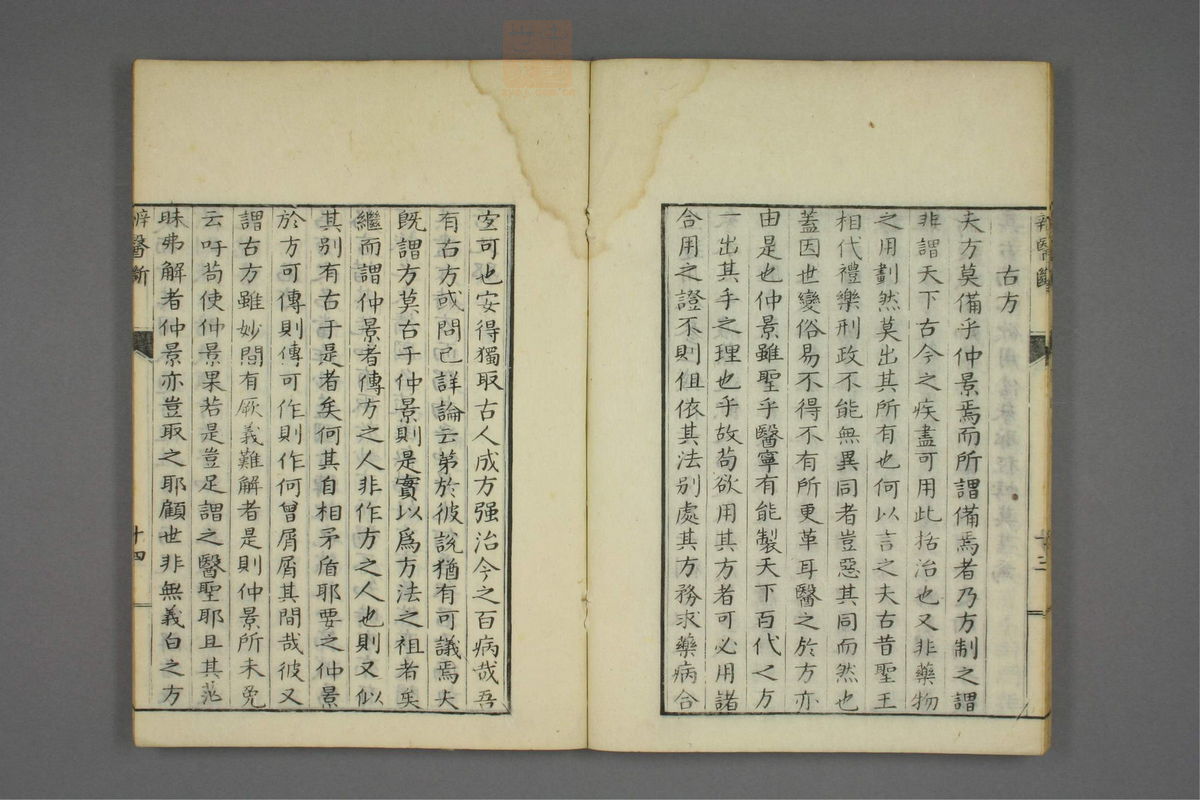 辨醫斷
十三
古方
夫方莫備乎仲景焉而所謂備焉者乃方制之謂
非謂天下古今之疾盡可用此括治也又非藥物
之用劃然莫出其所有也何以言之夫古昔聖王
相代禮樂刑政不能無異同者豈惡其同而然也
蓋因世變俗易不得不有所更革耳醫之於方亦
由是也仲景雖聖乎醫寧有能製天下百代之方
一出其手之理也乎故苟欲用其方者可必用諸
合用之證不則但依其法別處其方務求藥病合
宜可也安得獨取古人成方强治今之百病哉吾
有古方或問已詳論云第於彼說猶有可議焉夫
既謂方莫古于仲景則是實以爲方法之祖者矣
繼而謂仲景者傳方之人非作方之人也則又似
其別有古于是者矣何其自相矛盾耶要之仲景
於方可傳則傳可作則作何曾屑屑其間哉彼又
謂古方雖妙間有厥義難解者是則仲景所未免
云吁苟使仲景果若是豈足謂之醫聖耶且其茫
昧弗解者仲景亦豈取之耶顧世非無義白之方
辨醫斷
十四